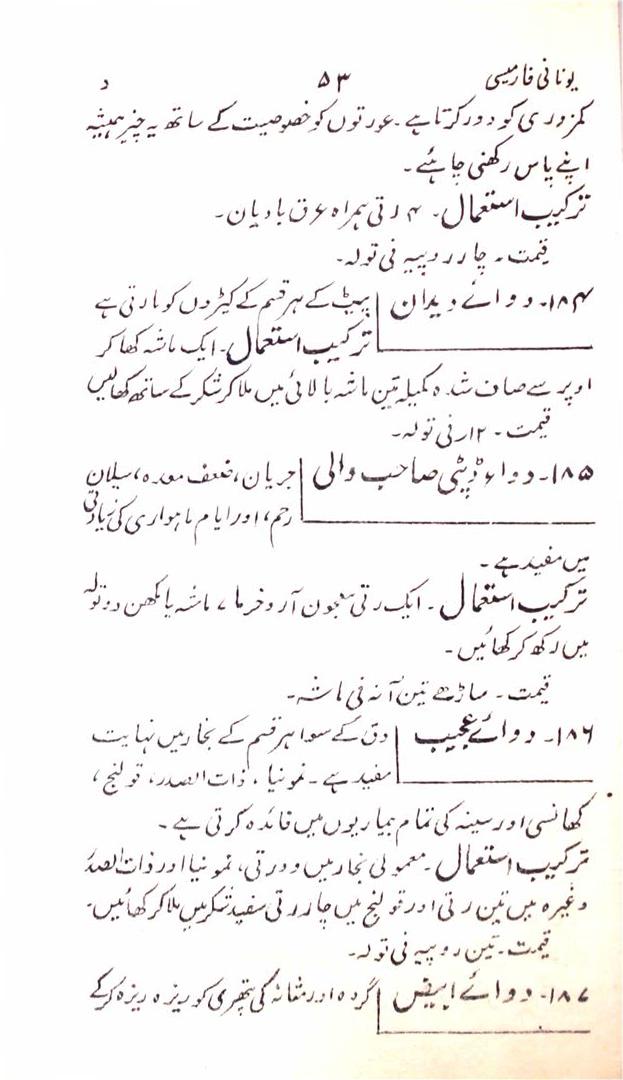 یونانی فارمیسی ۵۳ د
کمزوری کو دور کرتا ہے۔ عورتوں کو خصوصیت کے ساتھ یہ چیز ہمیشہ
اپنے پاس رکھنی چاہئے۔
ترکیب استعمال۔ ۴ رتی ہمراہ عرق بادیان۔
قیمت۔ چار روپیہ فی تولہ۔
۱۸۴۔ دوائے دیدان پیٹ کے ہر قسم کے کیڑوں کو مارتی ہے
ترکیب استعمال۔ ایک ماشہ کھا کر
اوپر سے صاف شدہ کمیلہ تین ماشہ بالائی میں ملا کر شکر کے ساتھ کھالیں
قیمت۔ ۱۲ ر فی تولہ۔
۱۸۵۔ دواء ڈپٹی صاحب والی جریان، ضعف معدہ، سیلان
رحم، اور ایام ماہواری کی زیادتی
میں مفید ہے۔
ترکیب استعمال۔ ایک رتی معجون آردخرما ۷ ماشہ یا مکھن دو تولہ
میں رکھ کر کھائیں۔
قیمت۔ ساڑھے تین آنہ فی ماشہ۔
۱۸۶۔ دوائے عجیب دق کے سوا ہر قسم کے بخار میں نہایت
مفید ہے۔ نمونیا، ذات الصدر، قولنج،
کھانسی اور سینہ کی تمام بیماریوں میں فائدہ کرتی ہے۔
ترکیب استعمال۔ معمولی بخار میں دو رتی، نمونیا اور ذات الصدر
وغیرہ میں تین رتی اور قولنج میں چار رتی سفید شکر میں ملا کر کھائیں۔
قیمت۔ تین روپیہ فی تولہ۔
۱۸۷۔ دوائے ابیض گردہ اور مثانہ کی پتھری کو ریزہ ریزہ کرکے